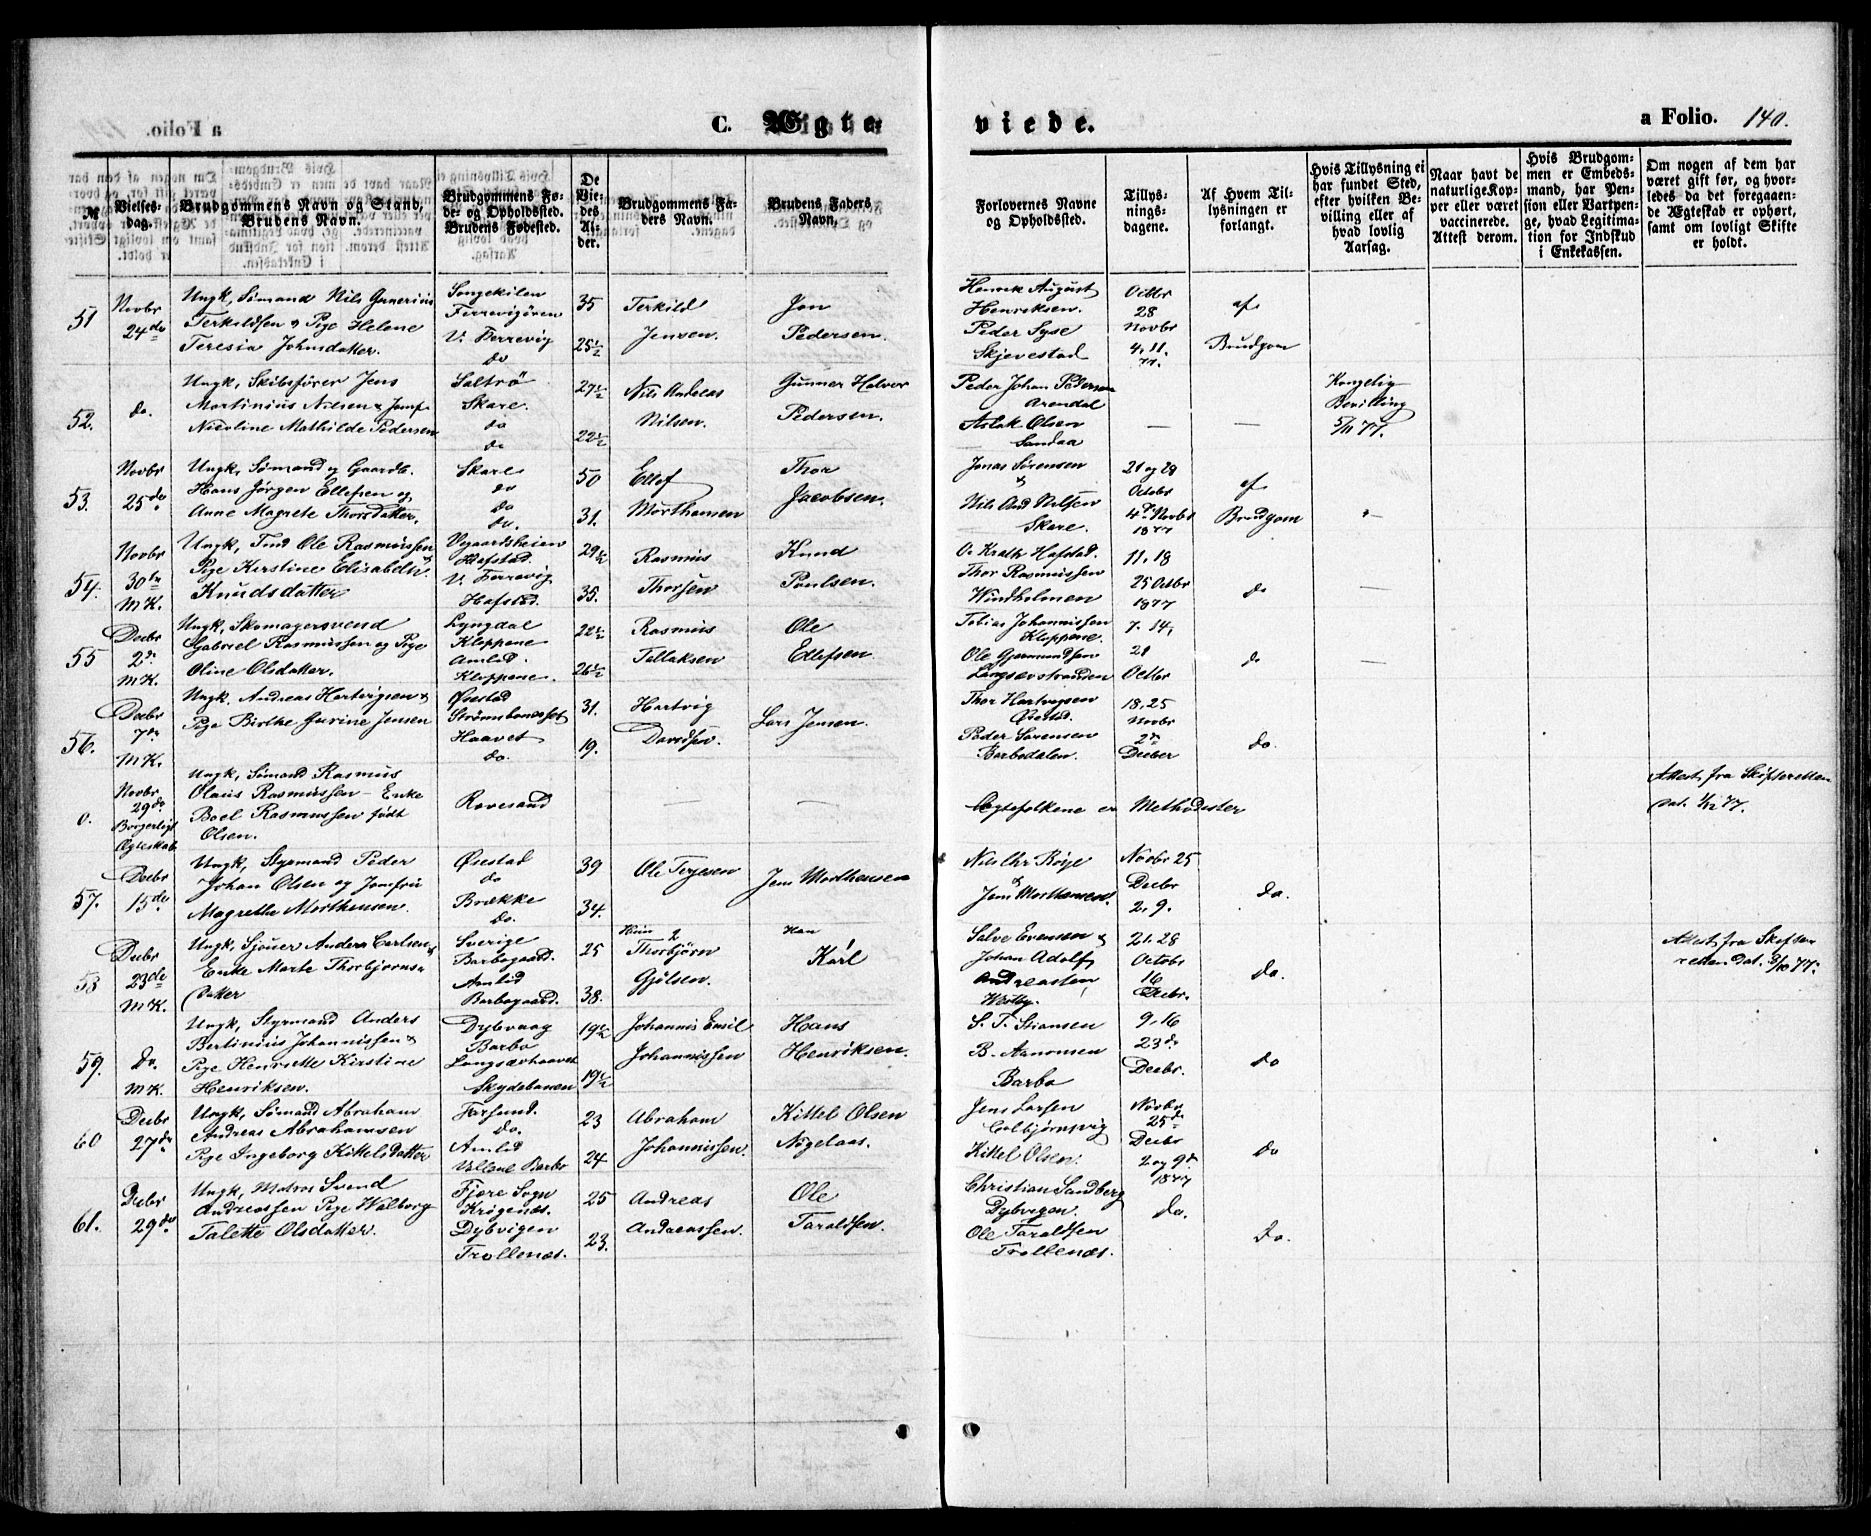 C. Ægteviede.
a Folio. 140.
№
Vielsesdag.
Brudgommens Navn og Stand, Brudens Navn.
Brudgommens Føde- og Opholdssted. Brudens Fødested.
De Viedes Alder.
Brudgommens Faders Navn.
Brudens Faders Navn.
Forlovernes Navne og Opholdssted.
Tillysningsdagene.
Af Hvem Tillysningen er forlangt.
Hvis Tillysning ei har fundet Sted, efter hvilken Bevilling eller af hvad lovlig Aarsag.
Naar havt de naturlige Kopper eller været vaccinerede. Attest derom.
Hvis Brudgommen er Embedsmand, har Pension eller Vartpenge, hvad Legitimation for Indskud i Enkekassen.
Om nogen af dem har været gift før, og hvorledes da det foregaaende Ægteskab er ophørt, samt om lovligt Skifte er holdt.
51
Novbr
24de
Ungk, Sømand Nils
Terkildsen & Pige Helene
Teresia Johnsdatter.
Songekilen
V. Torrevig
do
35
25½
Terkild
Jensen.
Jon
Pedersen.
Henrik August
Henriksen.
Peder Syse
Skjevestad
Octbr
28
Novbr
4, 11.
77.
af
Brudgom
52.
do.
Ungk, Skibsfører Jens
Martinius Nilsen & Jomf.
Nicoline Mathilde Pedersen
Saltrø
Skare.
do
do
27½
22½
Nils Andreas
Nilsen.
Gunner Halvor
Pedersen.
Peder Johan Pedersen
Arendal
Aslak Olsen
Sandaa
—
—
Kongelig
Bevilling
5/11 77.
53.
Novbr
25de
Ungk, Sømand og Gaardb.
Hans Jørgen Ellefsen og
Anne Magrete Thorsdatter.
Skare
do
do
do.
50
31.
Ellef
Morthensen
Thor
Jacobsen.
Jonas Sørensen
&
Nils And Nilsen
Skare.
21 og 28
Octobr
4de Novbr
1877
af
Brudgom
54.
Novbr
30te
MK.
Ungk, Tmd Ole Rasmussen &
Pige Kirstine Elisabeth
Knudsdatter
Vegaardsheien
Hafstad.
V. Torrevig
Hafstad.
29½
35.
Rasmus
Thorsen
Knud
Poulsen.
O. Hafstad.
Thor Rasmussen
Windholmen
11. 18
25 Octbr
1877
do
—
55
Decbr
2de
MK.
Ungk, Skomagersvend
Gabriel Rasmussen og Pige
Oline Olsdatter.
Lyngdal
Kloppene
Amlid.
Kloppene.
22½
26½
Rasmus
Tellaksen
Ole
Ellefsen.
Tobias Johannissen
Kloppene.
Ole Gjermundsen
Langsævstranden
7. 14,
21
Octbr
do
—
56.
Decbr
7de
MK.
Ungk. Andreas Hartvigsen &
Pige Birthe Gurine Jensen
Øiestad
Haavet
do.
31.
19.
Hartvig
Davidsen.
Lars Jensen.
Thor Hartvigsen
Øiestad.
Peder Sørensen
Barbodalen.
18. 25
Novbr
2de
Decber
do.
0.
Novbr
29de
Borgerligt
Ægteskab
Ungk, Sømand Rasmus
Olaus Rasmussen – Enke
Boel Rasmussen født
Olsen.
Revesand
—
—
Ægtefolkene er Methodister
Attest fra Skifteretten
dat. 1/12 77.
57.
Decbr
15de
Ungk, Styrmand Peder
Johan Olsen og Jomfru
Magrethe Morthensen.
Øiestad
do
Brække
do.
39
34.
Ole Terjesen
Jens Morthensen
Nils Chr Boije
&
Jens Morthensen.
Novbr 25
Decbr
2. 9.
do.
58
Decbr
23de
MK.
Ungk, Sjouer Anders Carlsen &
Enke Marte Thorbjørns-
datter
Sverige
Barbogaard.
Amlid
Barbogaard.
25
38.
Hun 2
Thorbjørn
Gjølsen.
Han
Karl
Salve Evensen &
Johan Adolf
Andreasten
21. 28
Octobr
16
Decbr.
do.
Attest fra Skifte-
retten dat. 3/10 77.
59.
do.
MK.
Ungk, Styrmand Anders
Bertinius Johannissen &
Pige Henriette Kirstine
Henriksen.
Dybvaag
Barbo
Langsævhaavet
Skydebanen
19½
19½
Johannis Emil
Johannissen
Hans
Henriksen.
S. T. Stiansen
B. Aanonsen
Barbo
9. 16
23de
Decbr.
do
60
Decbr
27de
Ungk, Sømand Abraham
Andreas Abrahamsen
Pige Ingeborg Kittelsdatter
Farsund.
do.
Amlid
Vellene Barbo
23
24
Abraham
Johannissen.
Kittel Olsen
Nøgelaas.
Jens Larsen
Colbjørnsvig
Kittel Olsen.
Novbr
25de
Decbr
2 og 9de
1877
do
61.
Decbr
29de
Ungk, Matros Svend
Andreassen Pige Walborg
Talette Olsdatter.
Fjære Sogn
Krøgenæs.
Dybvigen
Trollenæs.
25
23.
Andreas
Andreassen.
Ole
Taraldsen.
Christian Sandberg
Dybvigen.
Ole Taraldsen
Trollenæs.
do.
do.